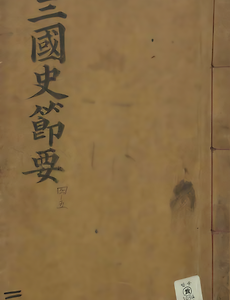 三國史節要
四之五
三